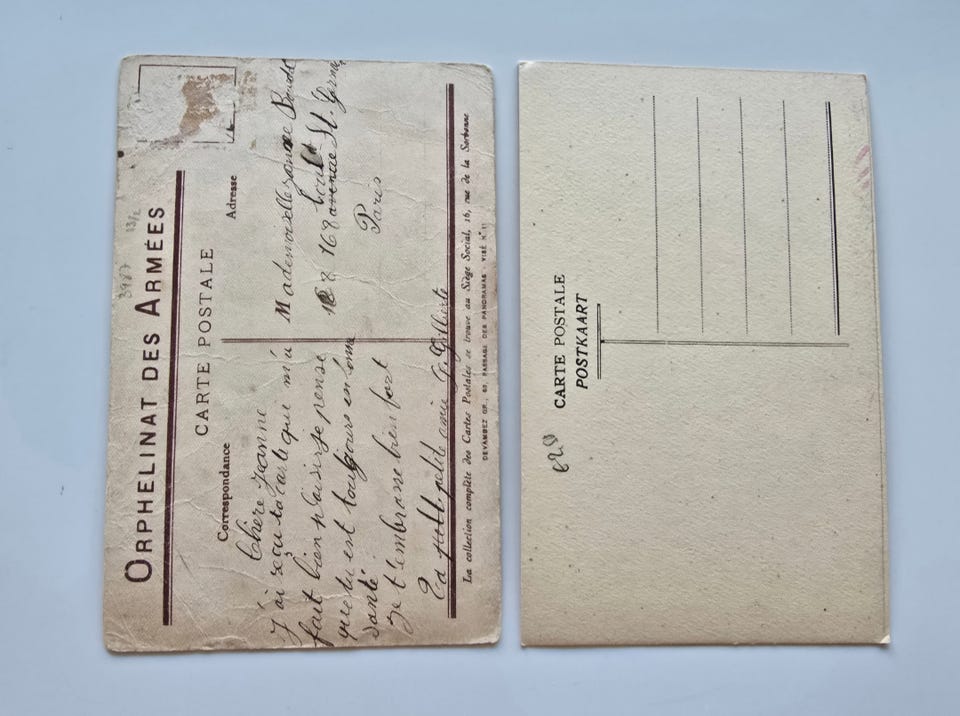 ORPHELINAT DES ARMÉES
CARTE POSTALE
Correspondance
Adresse
Chère Jeanne
J'ai reçu ta carte qui m'a
fait bien plaisir je pense
que tu est toujours en bonne
santé.
Je t'embrasse bien fort
Ta petite amie Gilberte
Mademoiselle
168 avenue St. Germ
Paris
La collection complète des Cartes Postales se trouve au Siège Social, 16, rue de la Sorbonne
DEVAMBEZ GR., 63, PASSAGE DES PANORAMAS - VISÉ N° 11
3987 13/2
CARTE POSTALE
POSTKAART